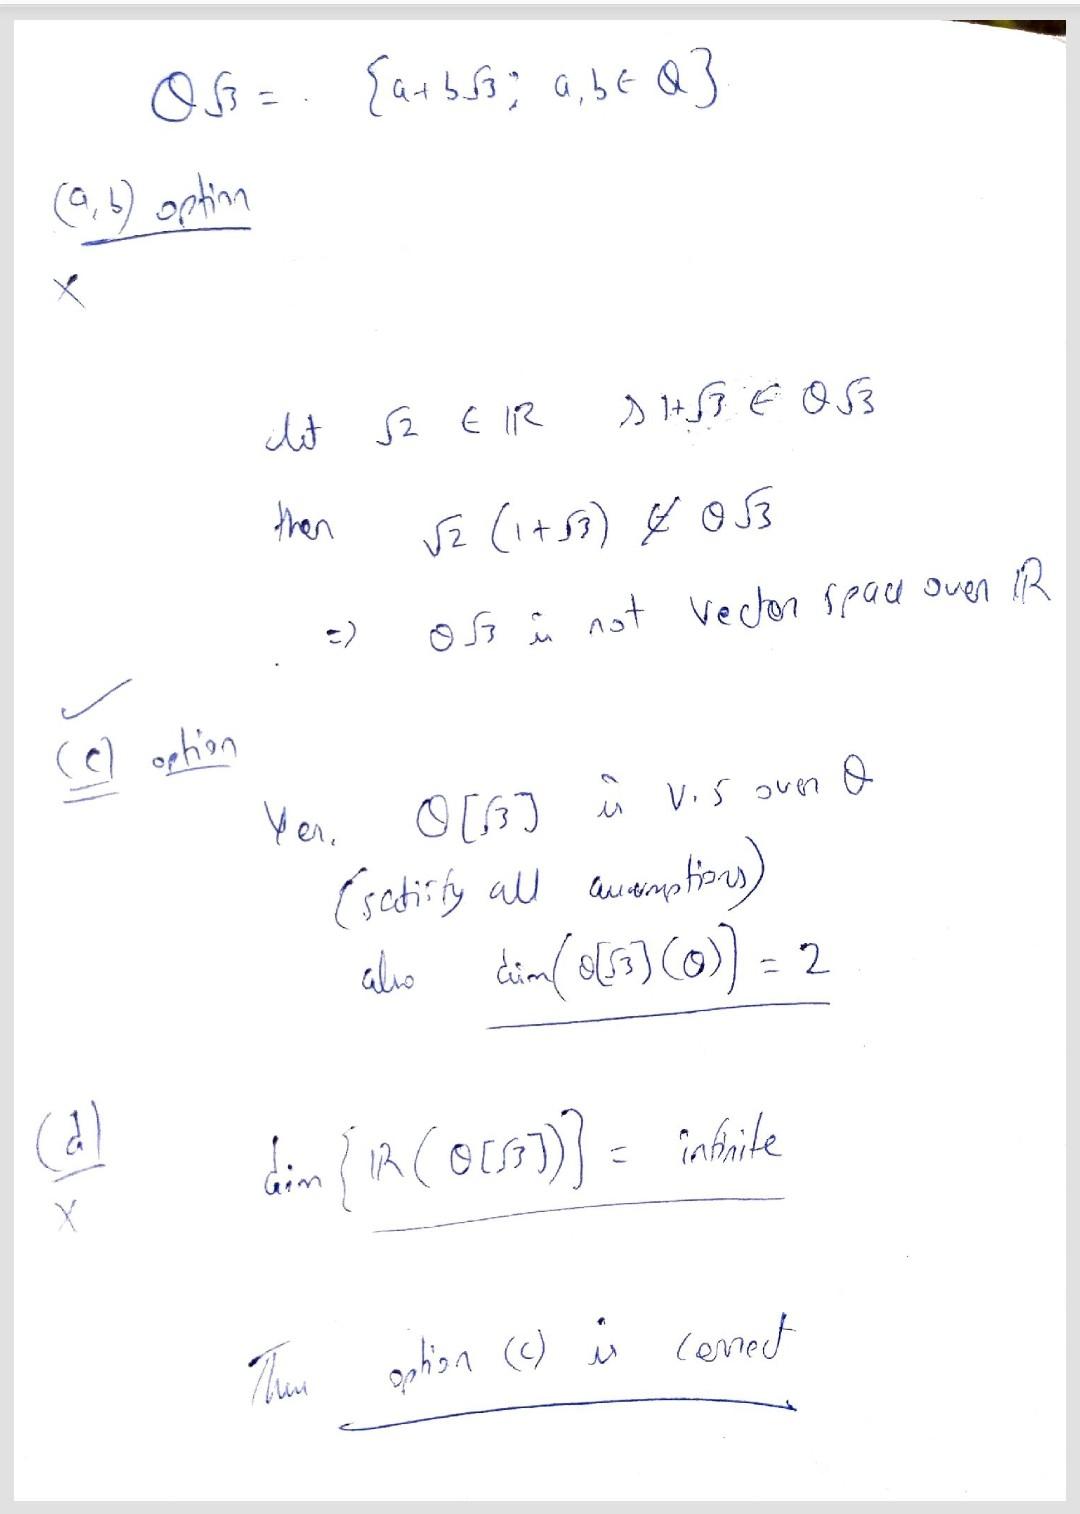 Q√3 = . {a+b√3 ; a,b ∈ Q}
(a,b) option
×
let √2 ∈ IR & 1+√3 ∈ Q√3
then √2 (1+√3) ∉ Q√3
=) Q√3 is not vector space over IR
✓
(c) option
Yes. Q[√3] is V.S over Q
(satisfy all assumptions)
also dim(Q[√3](Q)) = 2
(d)
dim{IR(Q[√3])} = infinite
×
Thus option (c) is correct